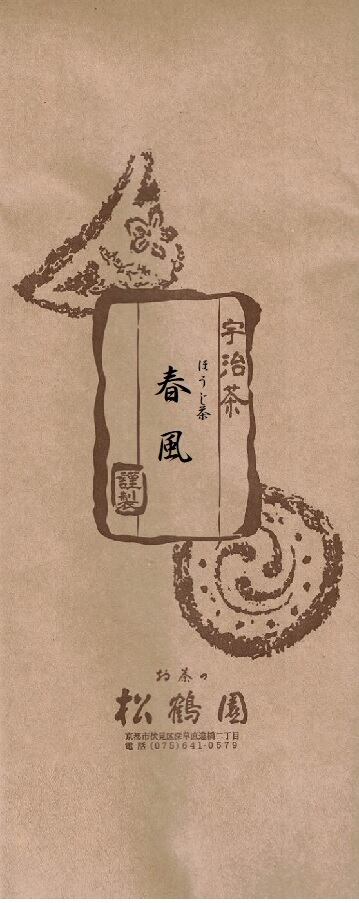 宇治茶
ほうじ茶
春風
謹製
お茶の
松鶴園
京都市伏見区深草直違橋二丁目
電話(075)641-0579